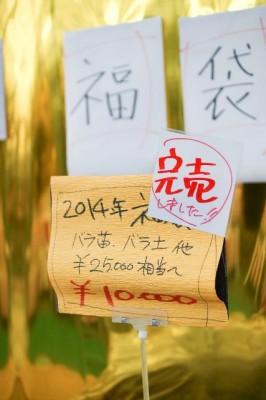 福
袋
完売
しました!!
2014年 福
バラ苗、バラ土 他
¥25,000相当へ
¥10,000